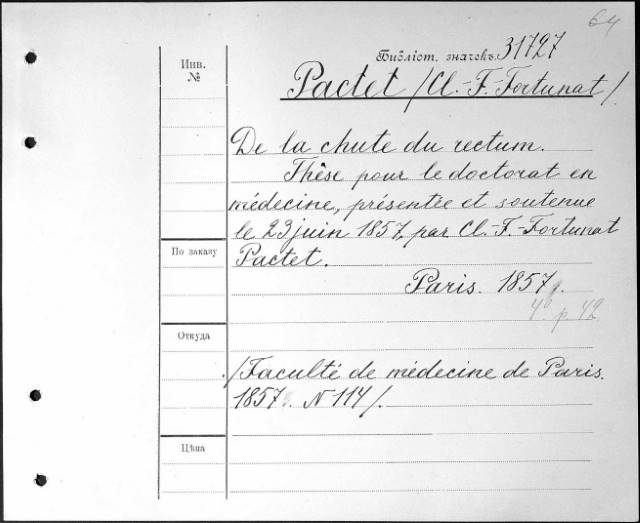 64
Инв.
№
Библіот. значекъ. 31727
Pactet /Cl.-F.-Fortunat/.
De la chute du rectum.
Thèse pour le doctorat en
médecine, présentée et soutenue
le 23 juin 1857, par Cl.-F.-Fortunat
По заказу
Pactet.
Paris. 1857.
4° p. 42
Откуда
/Faculté de médecine de Paris.
1857. N 114/.
Цѣна